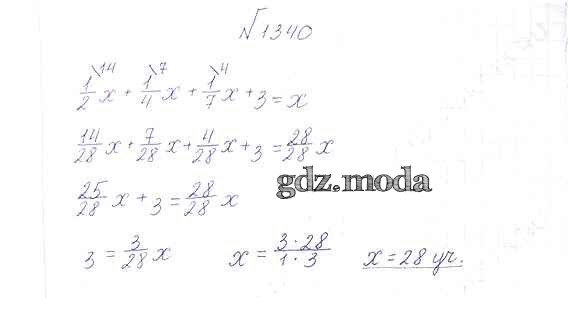 №1340
1/2\14 x + 1/4\7 x + 1/7\4 x + 3 = x
14/28 x + 7/28 x + 4/28 x + 3 = 28/28 x
gdz.moda
25/28 x + 3 = 28/28 x
3 = 3/28 x x = 3·28/1·3 x = 28 уч.